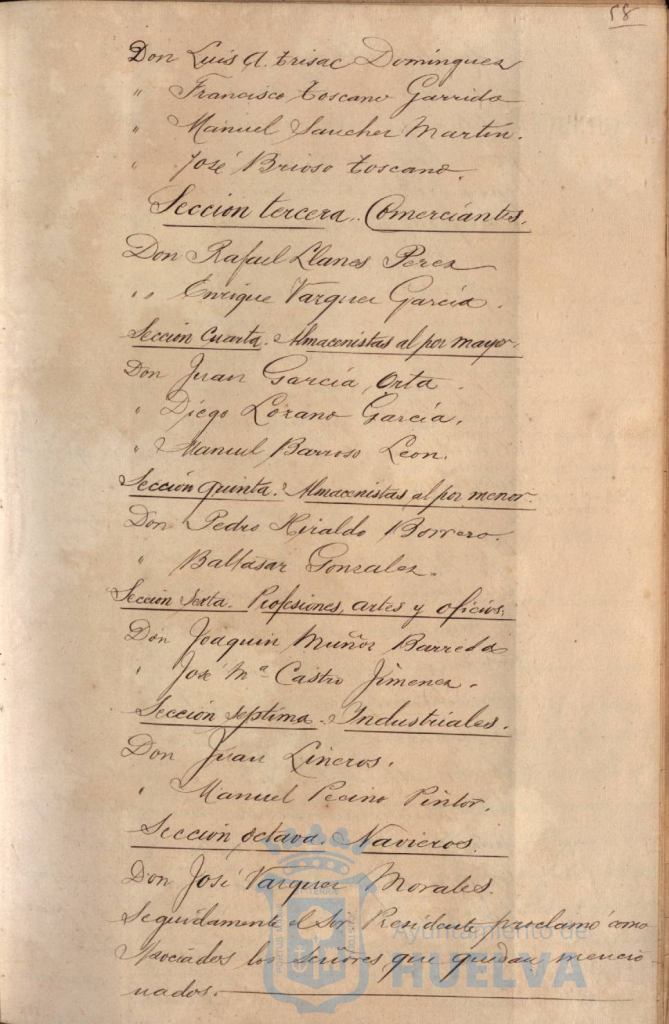 58
Don Luis A. Trisac Dominguez
" Francisco Toscano Garrido
" Manuel Sanchez Martin.
" José Brioso Toscano.
Seccion tercera. Comerciantes.
Don Rafael Llanes Perez
" Enrique Vazquez García.
Sección Cuarta. Almacenistas al por mayor.
Don Juan García Orta.
" Diego Lozano García.
" Manuel Barroso Leon.
Sección quinta. Almacenistas al por menor
Don Pedro Hiraldo Borrero.
" Baltasar Gonzalez.
Seccion Sexta. Profesiones, artes y oficios.
Don Joaquin Muñoz Barreda
" José Mª Castro Jimenez.
Sección Septima. Industriales.
Don Juan Lineros.
" Manuel Pecino Pintor.
Sección octava. Navieros.
Don José Vazquez Morales.
Seguidamente el Sor. Presidente proclamó como
Asociados los Señores que quedan mencio
nados.
Ayuntamiento de
HUELVA